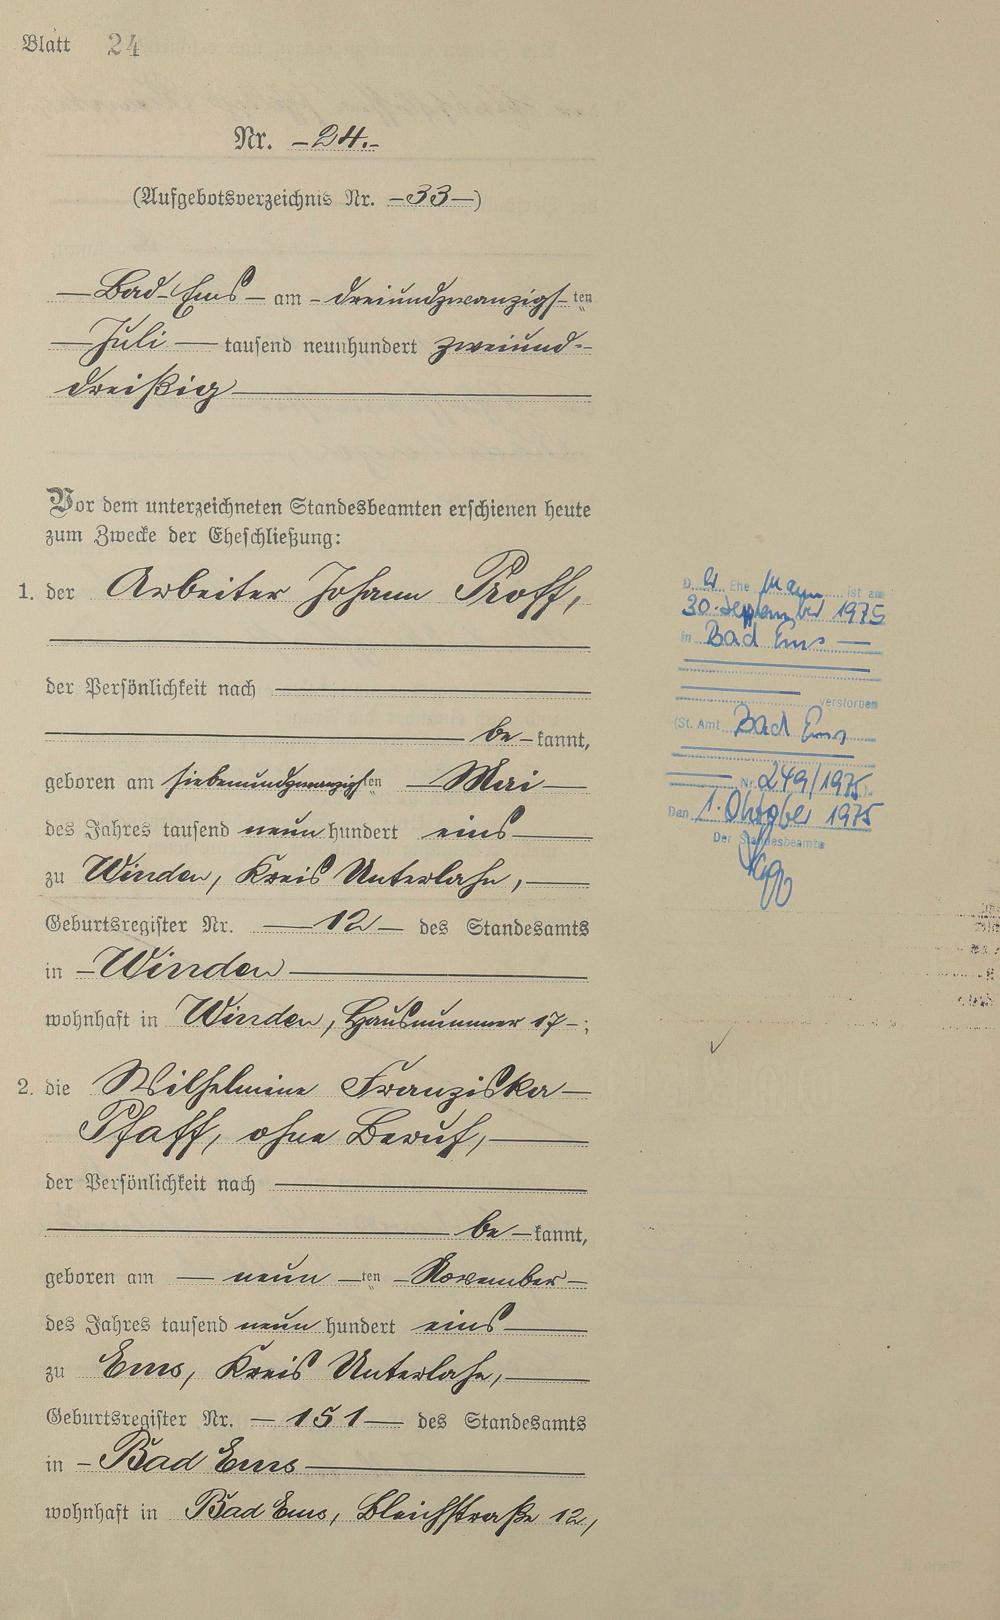 Blatt 24
Nr. -24.-
(Aufgebotsverzeichnis Nr. -33-)
Bad-Ems - am - dreiundzwanzigs-ten
Juli tausend neunhundert zweiund-
dreißig
Vor dem unterzeichneten Standesbeamten erschienen heute
zum Zwecke der Eheschließung:
1. der Arbeiter Johann Proff,
der Persönlichkeit nach
be-kannt,
geboren am siebenundzwanzigsten Mai
des Jahres tausend neun hundert eins
zu Winden, Kreis Unterlahn,
Geburtsregister Nr. 12 des Standesamts
in Winden
wohnhaft in Winden, Hausnummer 17-;
2. die Wilhelmine Franziska
Pfaff, ohne Beruf,
der Persönlichkeit nach
be-kannt,
geboren am neun-ten November
des Jahres tausend neun hundert eins
zu Ems, Kreis Unterlahn,
Geburtsregister Nr. 151 des Standesamts
in Bad Ems
wohnhaft in Bad Ems, Bleichstraße 12,
Der Ehemann ist am
30. September 1975
in Bad Ems
verstorben
(St. Amt Bad Ems
Nr. 249/1975).
Den 1. Oktober 1975
Der Standesbeamte